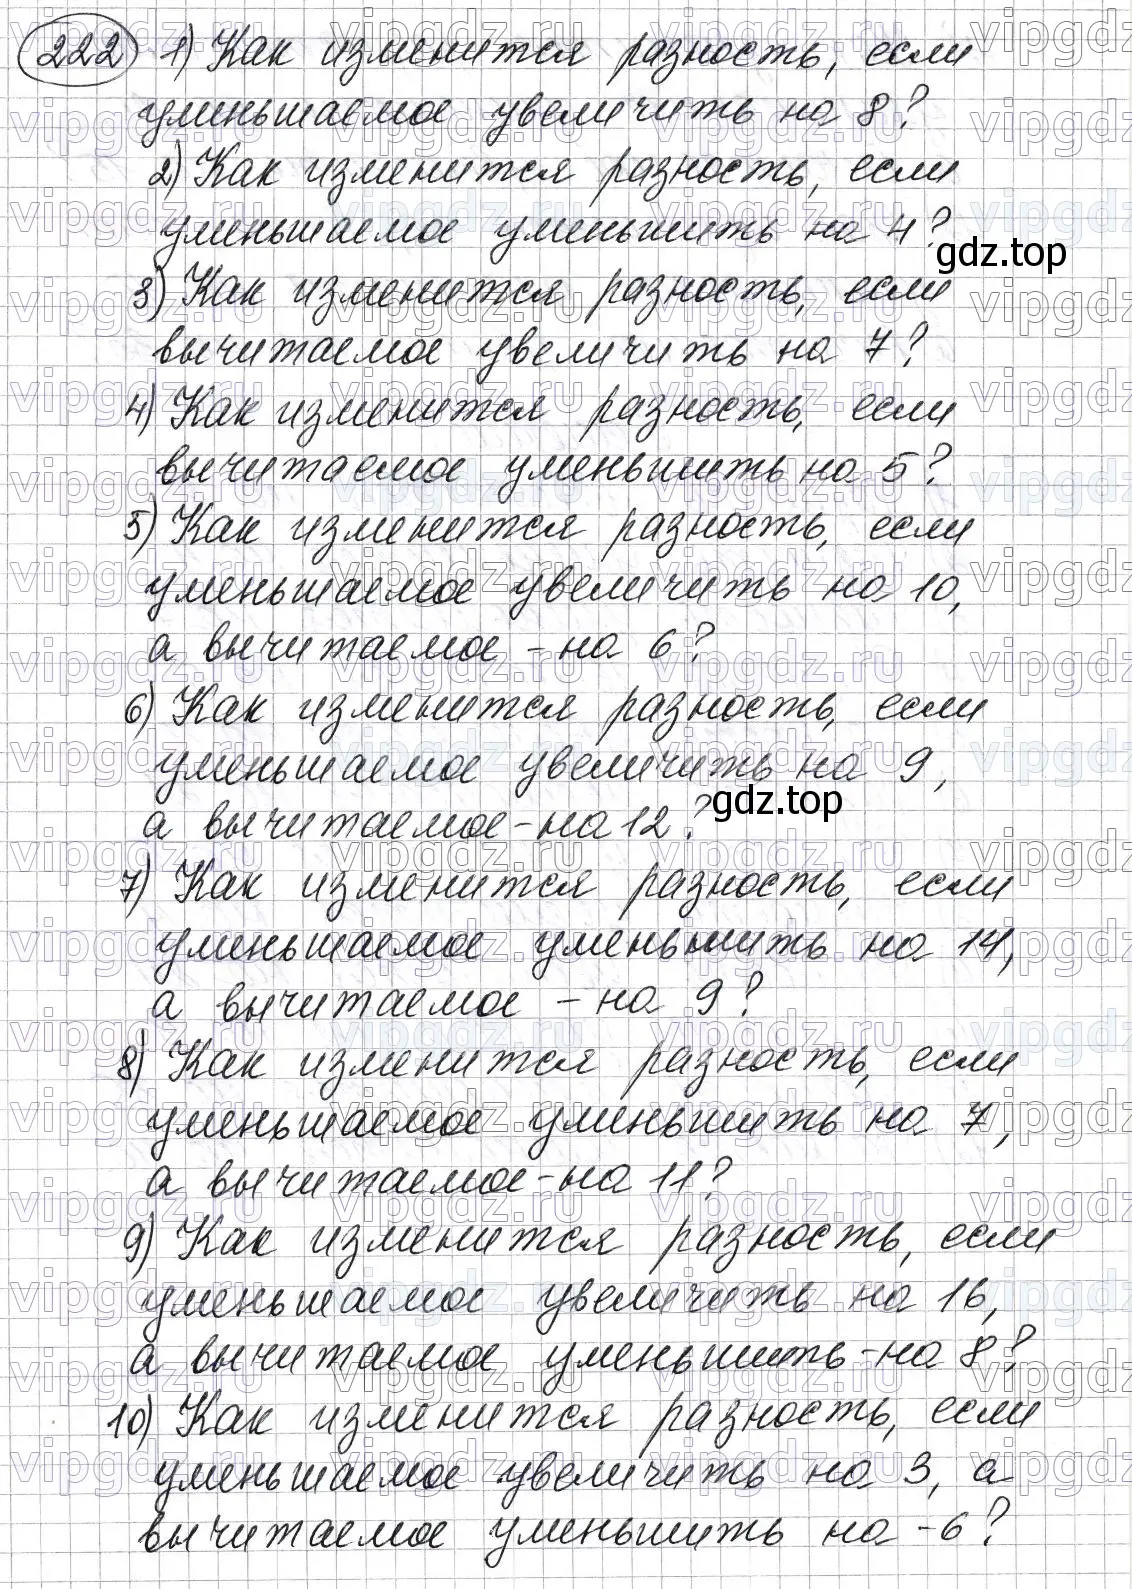 222 1) Как изменится разность, если
уменьшаемое увеличить на 8?
2) Как изменится разность, если
уменьшаемое уменьшить на 4?
gdz.top
3) Как изменится разность, если
вычитаемое увеличить на 7?
4) Как изменится разность, если
вычитаемое уменьшить на 5?
5) Как изменится разность, если
уменьшаемое увеличить на 10,
а вычитаемое - на 6?
6) Как изменится разность, если
уменьшаемое увеличить на 9,
а вычитаемое - на 12?
gdz.top
7) Как изменится разность, если
уменьшаемое уменьшить на 14,
а вычитаемое - на 9?
8) Как изменится разность, если
уменьшаемое уменьшить на 7,
а вычитаемое - на 11?
9) Как изменится разность, если
уменьшаемое увеличить на 16,
а вычитаемое уменьшить - на 8?
10) Как изменится разность, если
уменьшаемое увеличить на 3, а
вычитаемое уменьшить на -6?